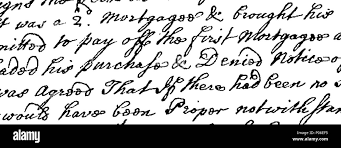 it was a 2. Mortgagee & brought his
mitted to pay off the first Mortgagee a
aded his purchase & Denied Notice o
was agreed That If there had been no s
would have been Proper notwithstan
alamy
Image ID: P06EF5
www.alamy.com